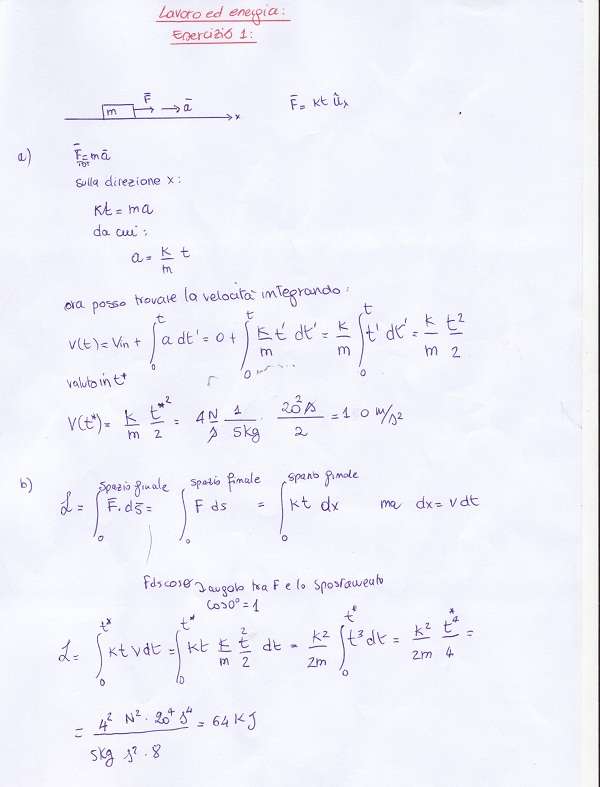 Lavoro ed energia:
Esercizio 1:
m F̄ ā x F̄ = kt ûₓ
a) F̄ = mā
TOT
sulla direzione x:
kt = ma
da cui:
a = k/m t
ora posso trovare la velocità integrando:
v(t) = Vin + ∫₀ᵗ a dt' = 0 + ∫₀ᵗ k/m t' dt' = k/m ∫₀ᵗ t' dt' = k/m t²/2
valuto in t*
V(t*) = k/m t*²/2 = 4 N/s 1/5kg · 20² s/2 = 1 0 m/s²
b) spazio finale spazio finale spazio finale
L = ∫₀ F̄·ds̄ = ∫₀ F ds = ∫₀ kt dx ma dx = v dt
Fds cosθ angolo tra F e lo spostamento
cos0° = 1
L = ∫₀^t* kt v dt = ∫₀^t* kt k/m t²/2 dt = k²/2m ∫₀^t* t³ dt = k²/2m t*⁴/4 =
= 4² N² · 20⁴ s⁴ / 5kg s² · 8 = 64 KJ